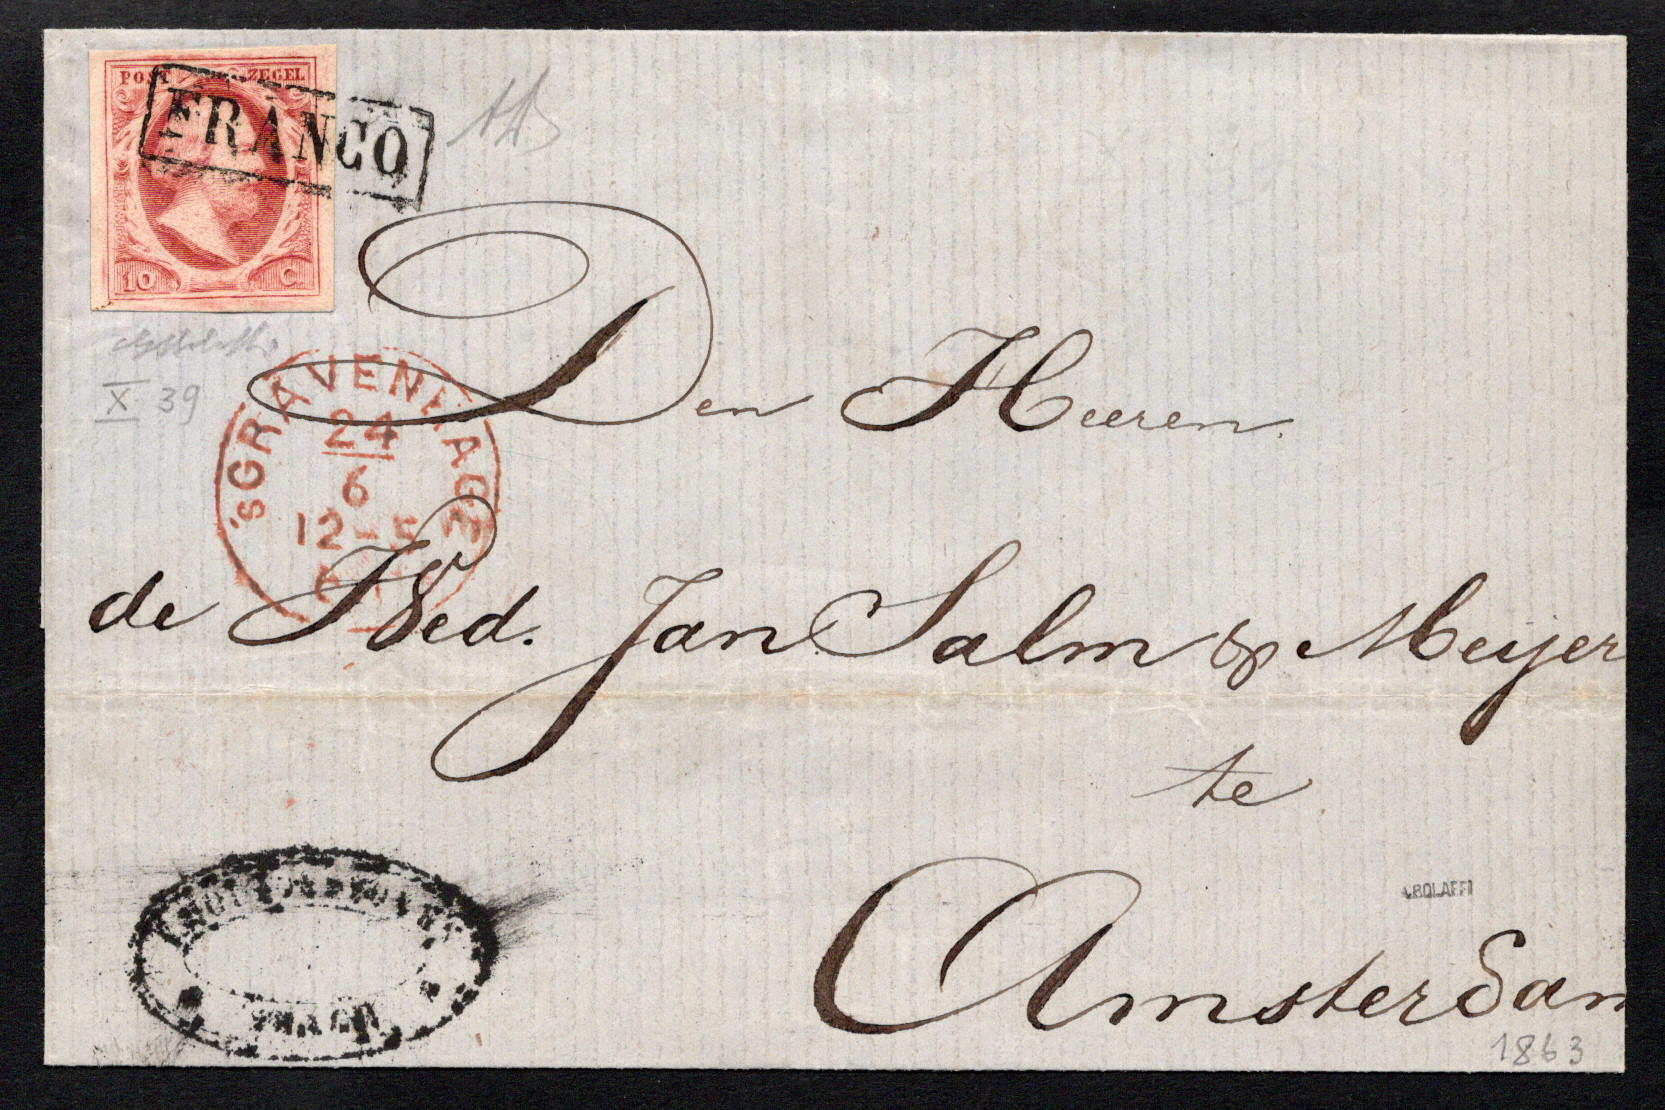 POST ZEGEL
FRANCO
10 C.
X 39
'sGRAVENHAGE
24
6
12-5
Den Heeren
de Wed. Jan Salm & Meijer
te
Amsterdam
A.BOLAFFI
1863